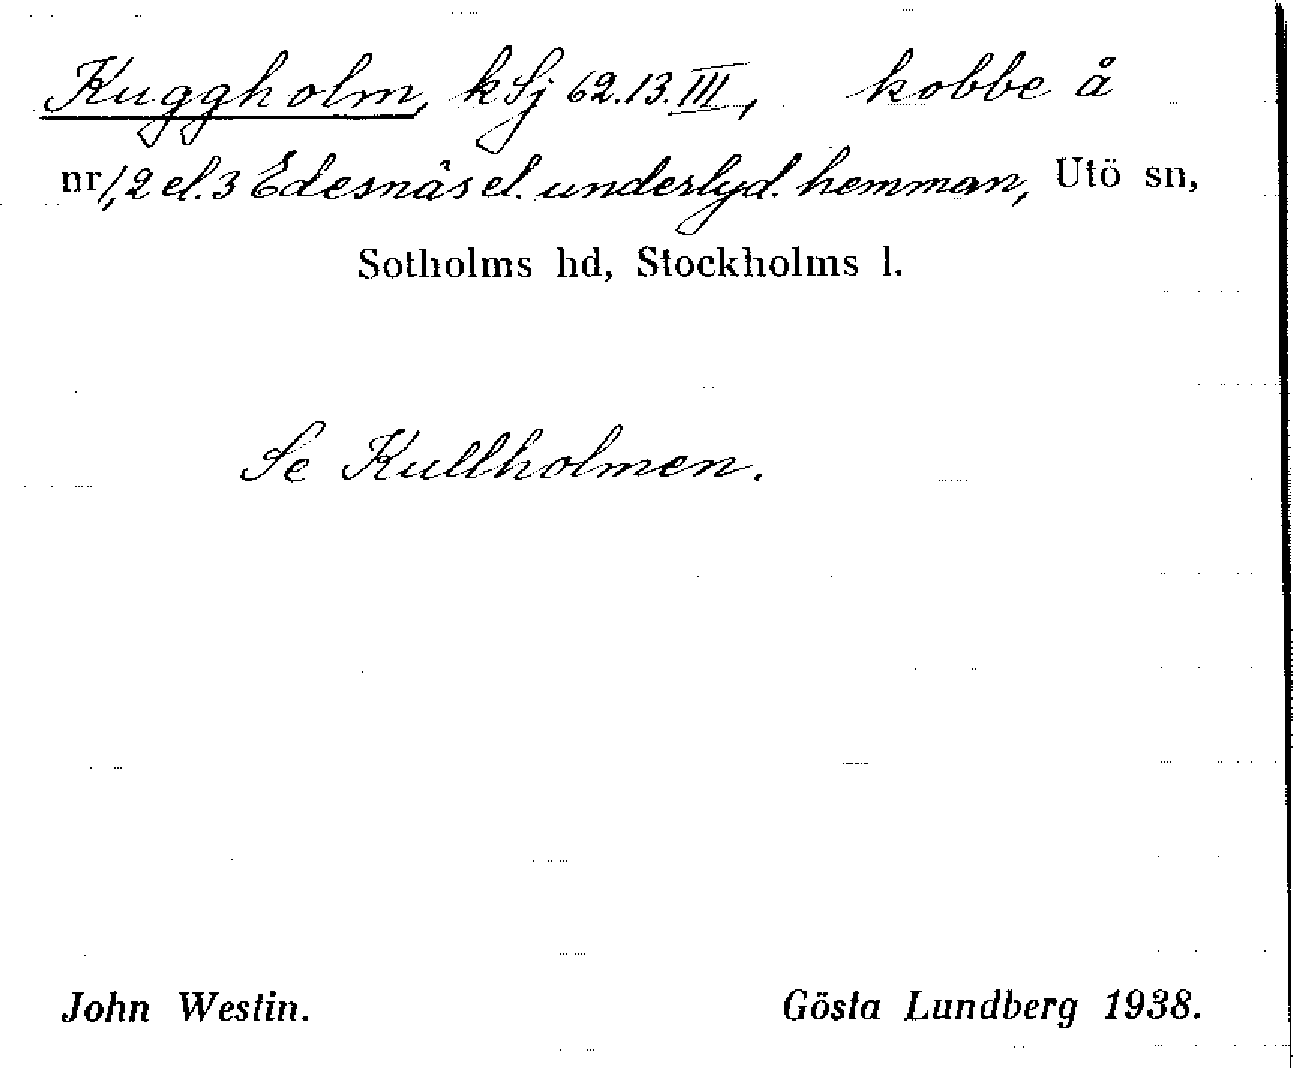 Kuggholm, kSj 62.13.III, kobbe å
nr 1, 2 el. 3 Edesnäs el. underlyd. hemman, Utö sn,
Sotholms hd, Stockholms l.
Se Kullholmen.
John Westin. Gösta Lundberg 1938.